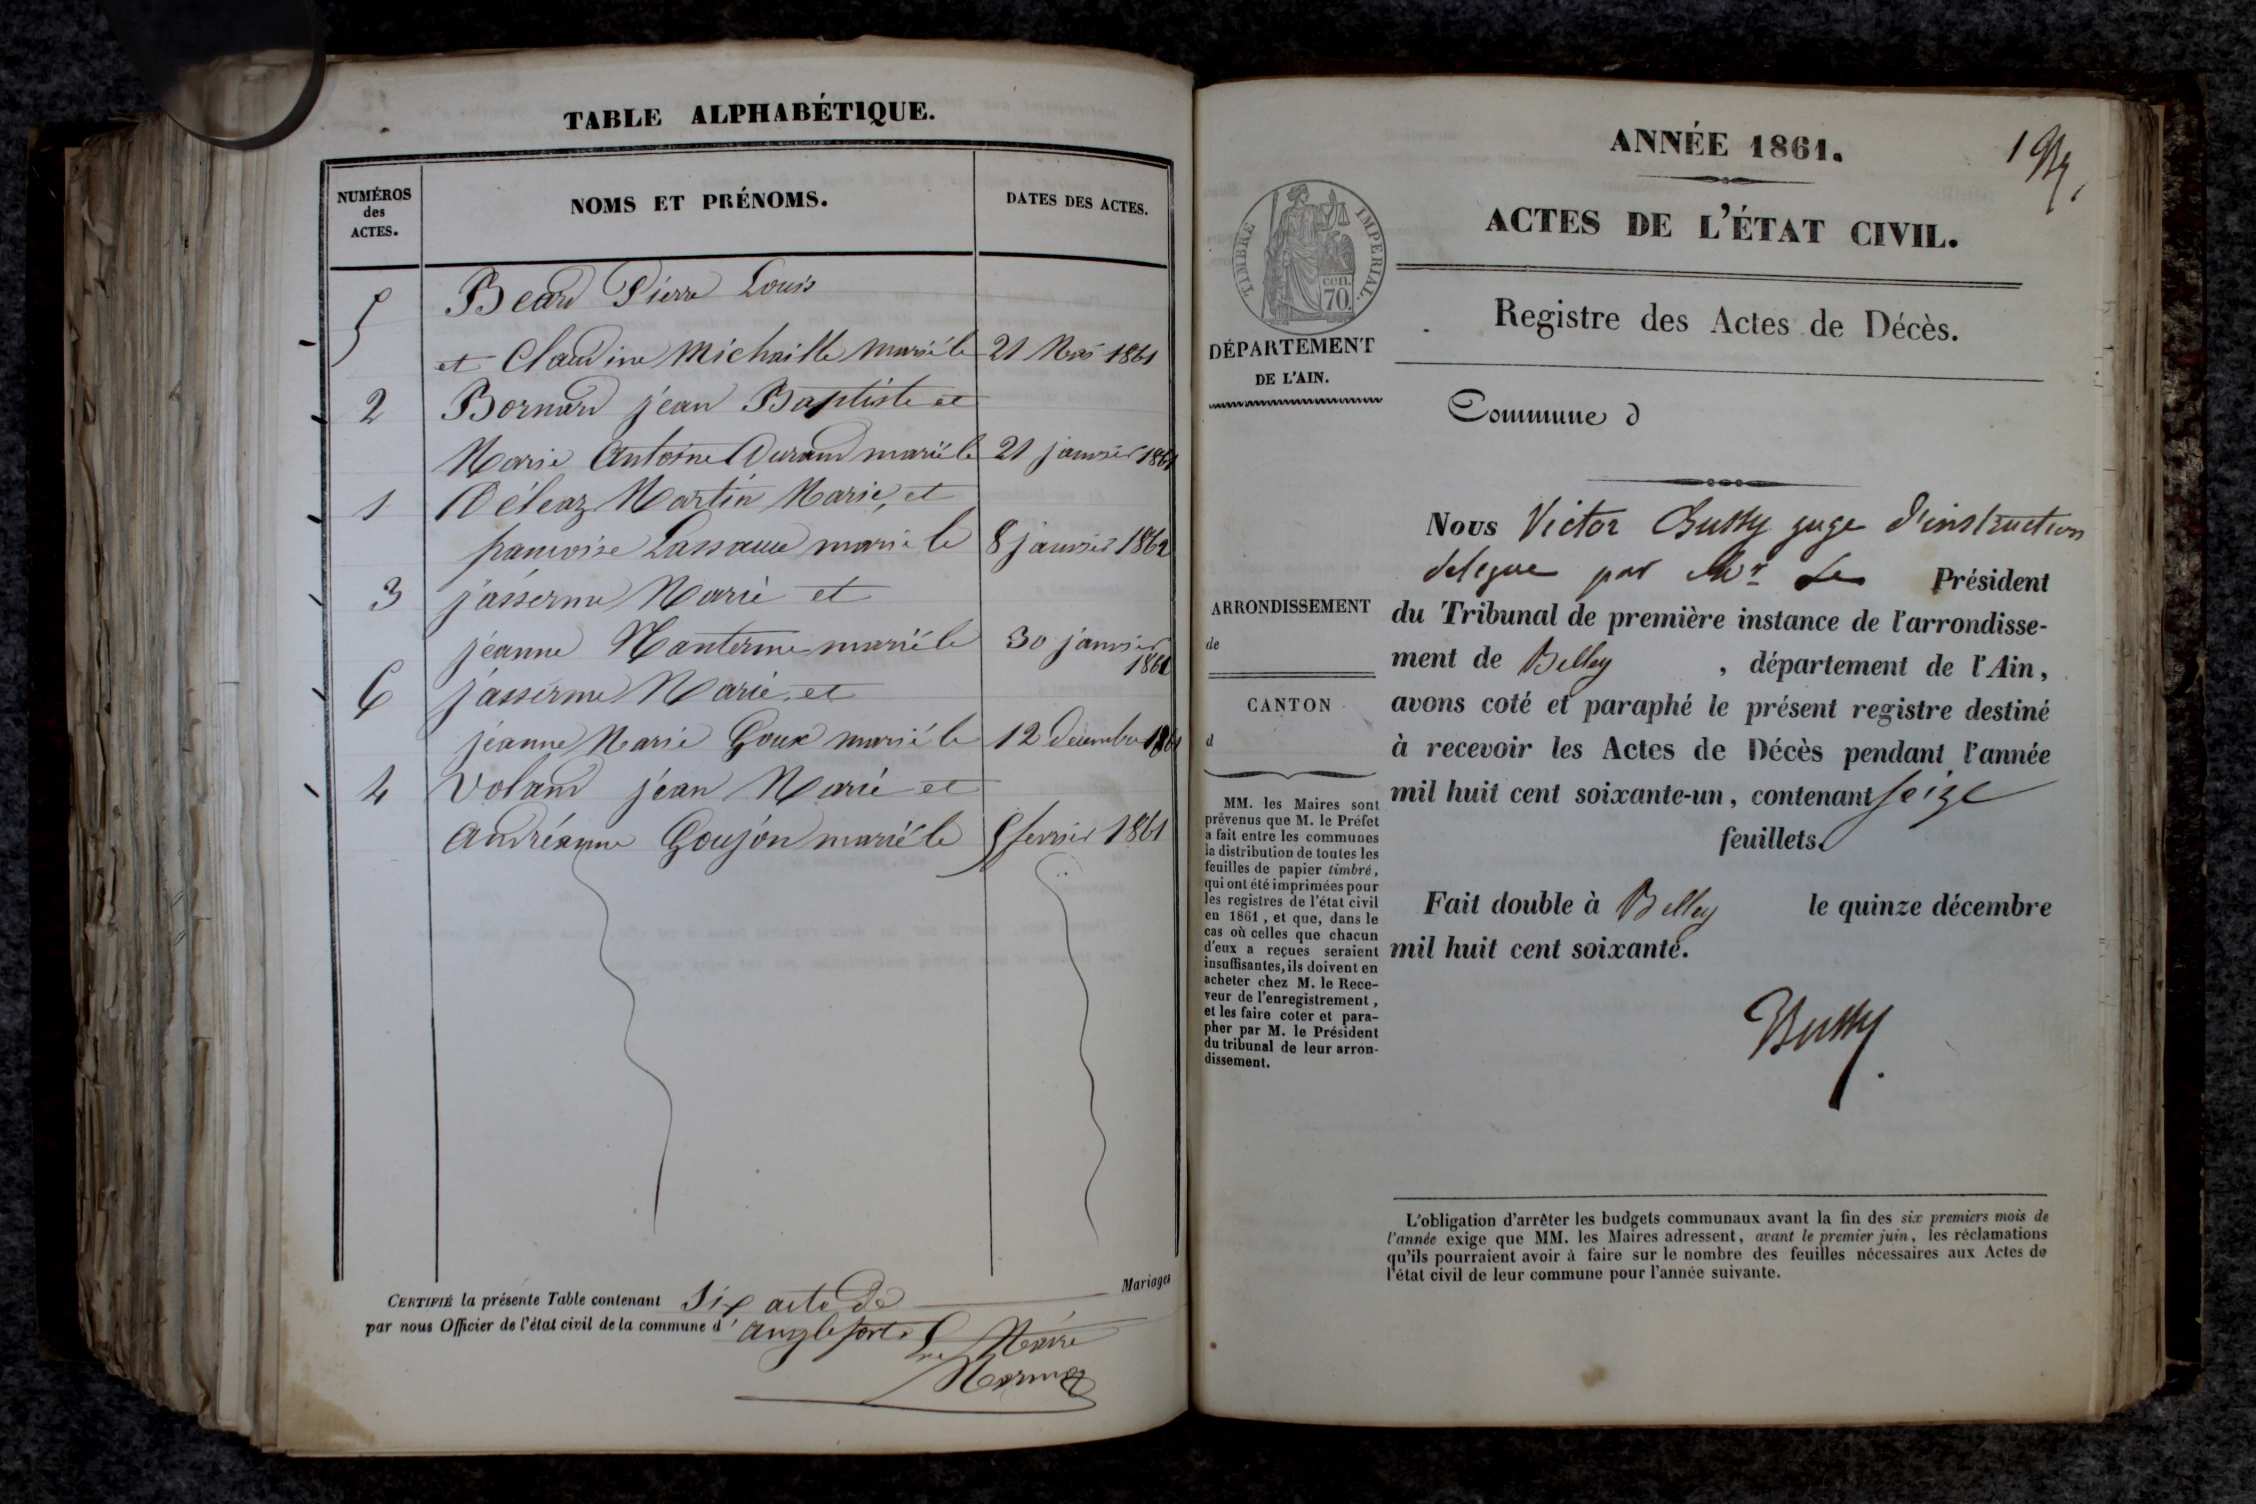 TABLE ALPHABÉTIQUE.
NUMÉROS
des
ACTES.
NOMS ET PRÉNOMS.
DATES DES ACTES.
5 Beard Pierre Louis
et Claudine Michaille marié le 21 Mai 1861
2 Bornard jean Baptiste et
Marie Antoine Durand marié le 21 janvier 1861
1 Déleaz Martin Marie, et
françoise Lassauce marié le 8 janvier 1861
3 jasserme Marie et
jéanne Manterme marié le 30 janvier
1861
6 jasserme Marie et
jéanne Marie Goux marié le 12 decembre 1861
4 Voland jéan Marie et
andréanne Goujon marié le 5 fevrier 1861
CERTIFIÉ la présente Table contenant Six acte de Mariages
par nous Officier de l'état civil de la commune d' anglefort Le Maire
ANNÉE 1861.
1
ACTES DE L'ÉTAT CIVIL.
TIMBRE IMPERIAL.
cen.
70
Registre des Actes de Décès.
DÉPARTEMENT
DE L'AIN.
Commune d
Nous Victor Bussy juge d'instruction
delegue par Mr Le Président
du Tribunal de première instance de l'arrondisse-
ment de Belley , département de l'Ain,
avons coté et paraphé le présent registre destiné
à recevoir les Actes de Décès pendant l'année
mil huit cent soixante-un, contenant seize
feuillets.
Fait double à Belley le quinze décembre
mil huit cent soixante.
Bussy
ARRONDISSEMENT
de
CANTON
d
MM. les Maires sont
prévenus que M. le Préfet
a fait entre les communes
la distribution de toutes les
feuilles de papier timbré,
qui ont été imprimées pour
les registres de l'état civil
en 1861, et que, dans le
cas où celles que chacun
d'eux a reçues seraient
insuffisantes, ils doivent en
acheter chez M. le Rece-
veur de l'enregistrement,
et les faire coter et para-
pher par M. le Président
du tribunal de leur arron-
dissement.
L'obligation d'arrêter les budgets communaux avant la fin des six premiers mois de
l'année exige que MM. les Maires adressent, avant le premier juin, les réclamations
qu'ils pourraient avoir à faire sur le nombre des feuilles nécessaires aux Actes de
l'état civil de leur commune pour l'année suivante.